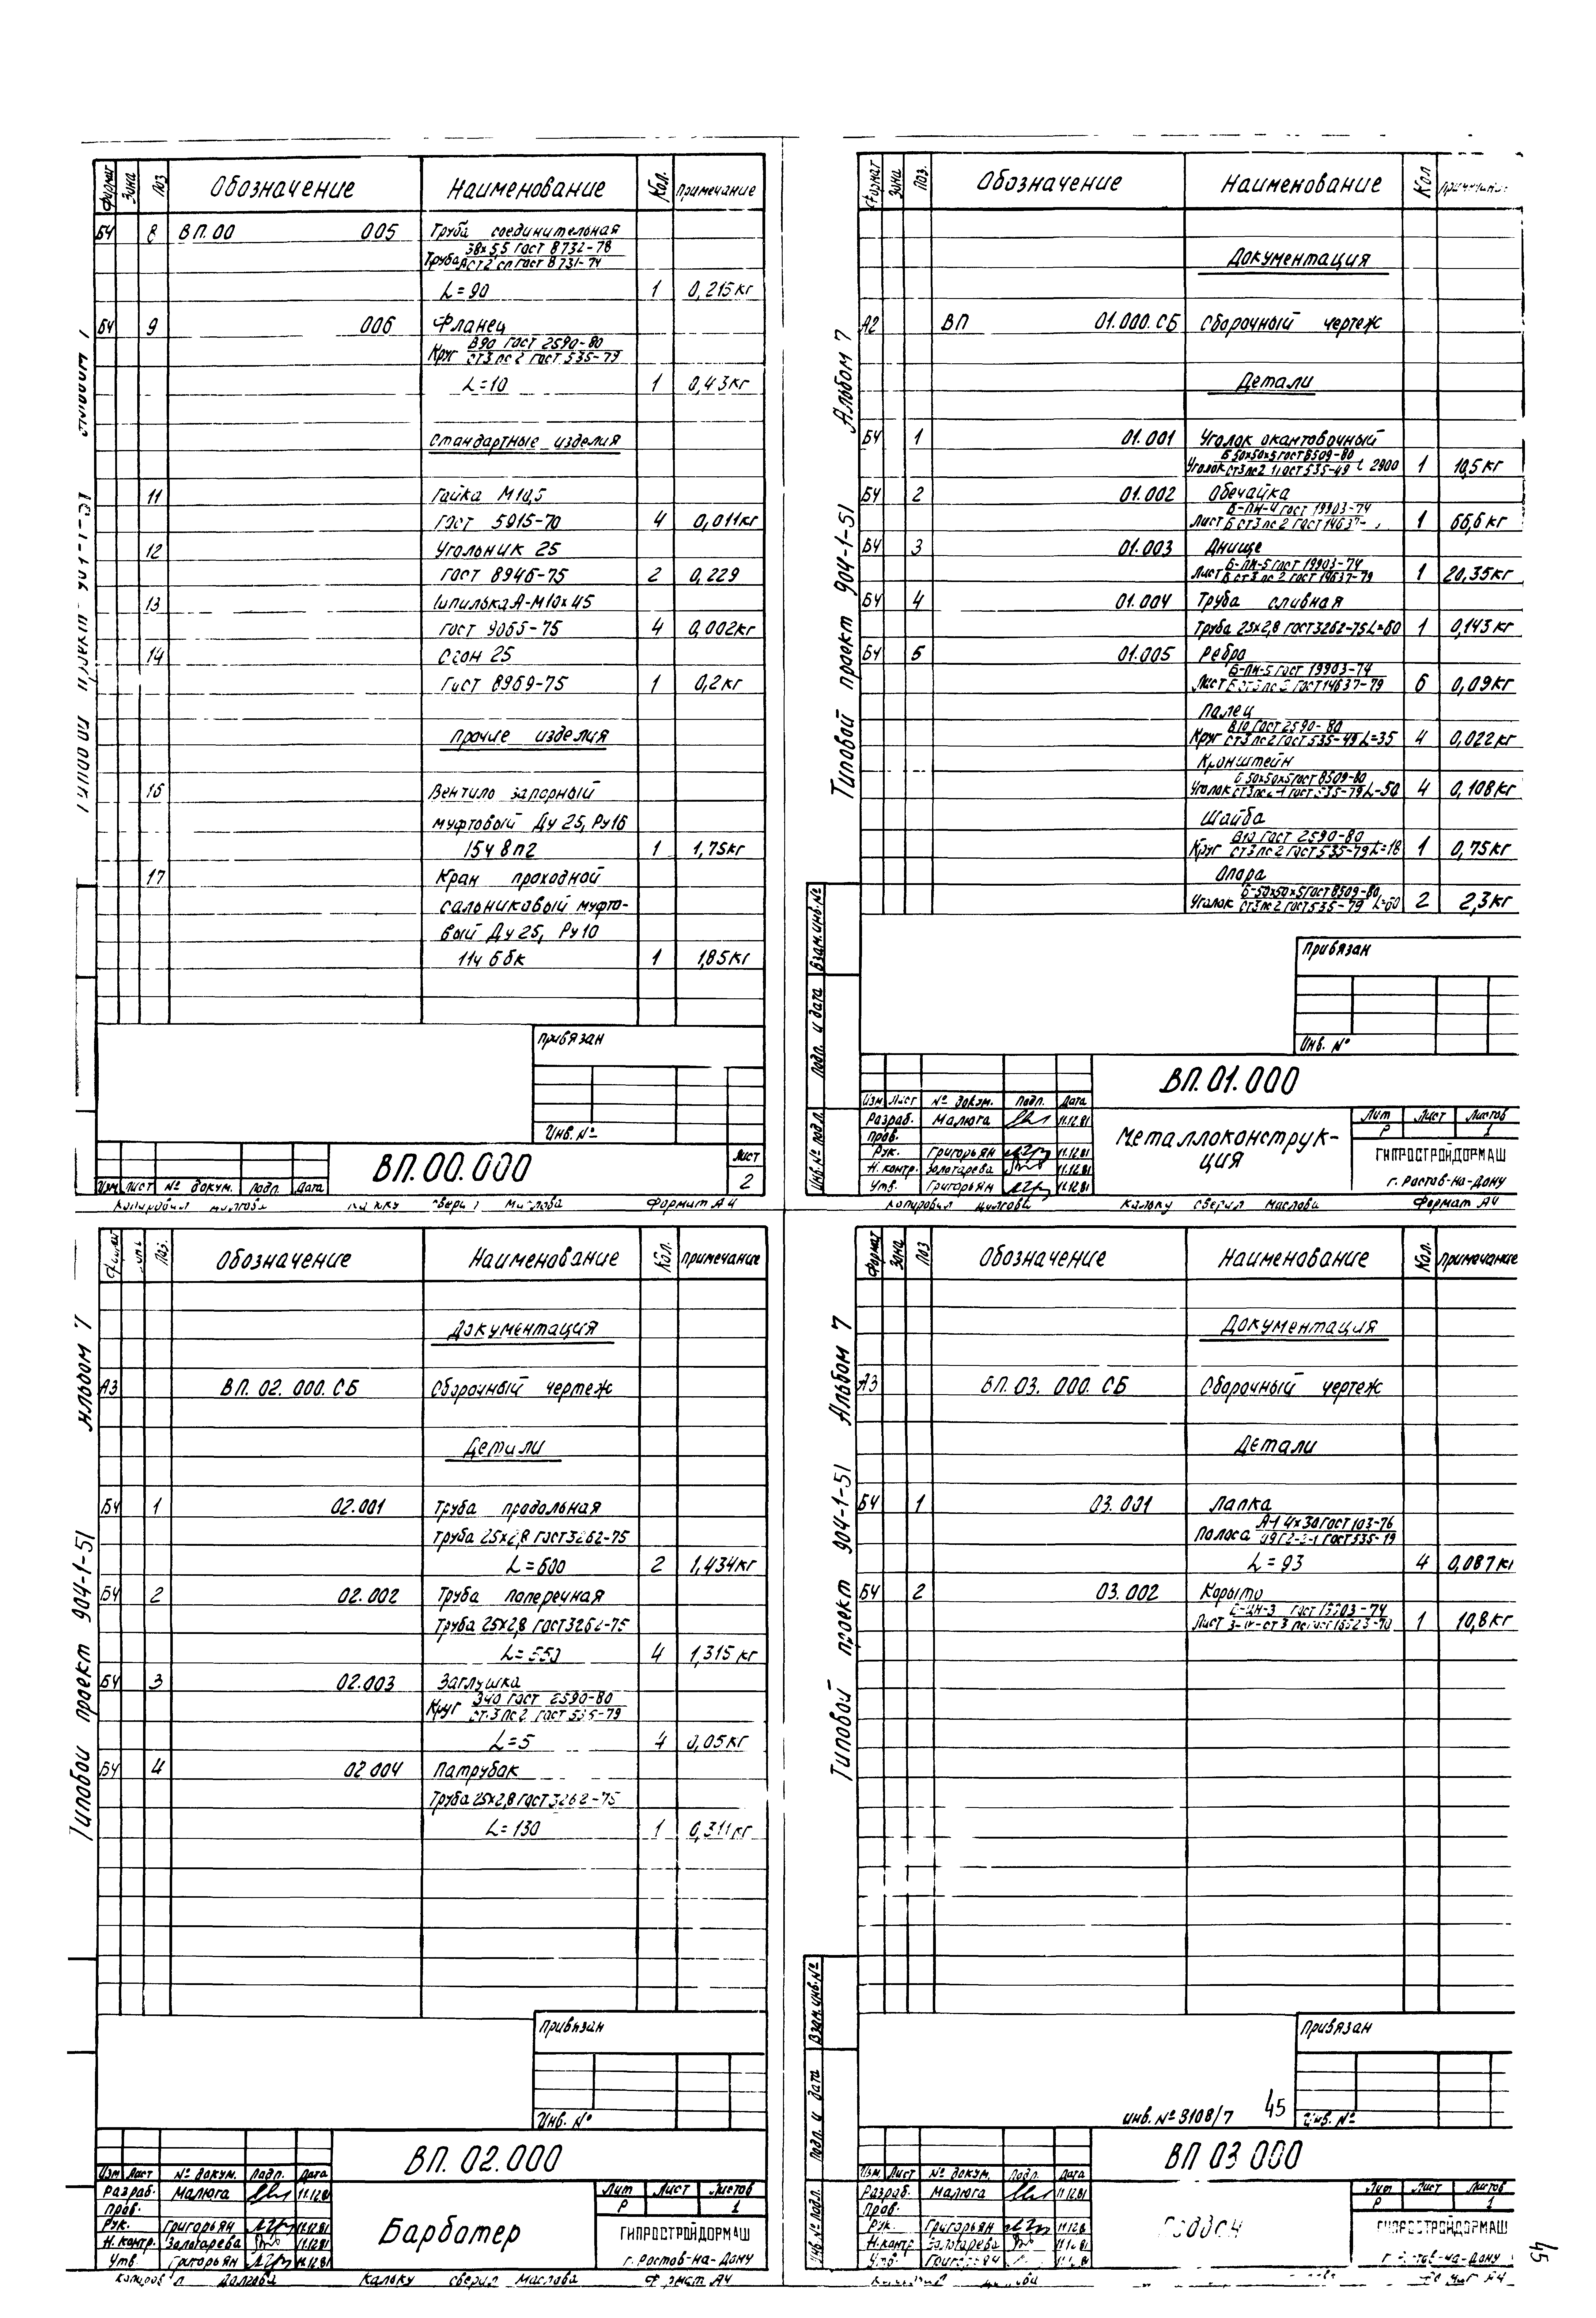 Формат Зона Поз Обозначение Наименование Кол. Примечание
БЧ 8 ВП.00 005 Труба соединительная
38х5,5 ГОСТ 8732-78
Труба Аст2 сп ГОСТ 8731-74
L=90 1 0,215кг
БЧ 9 006 Фланец
В90 ГОСТ 2590-80
Круг ст3 пс 2 ГОСТ 535-79
L=10 1 0,43кг
Стандартные изделия
11 Гайка М10,5
ГОСТ 5915-70 4 0,011кг
12 Угольник 25
ГОСТ 8946-75 2 0,229
13 Шпилька А-М10х45
ГОСТ 9065-75 4 0,002кг
14 Сгон 25
ГОСТ 8969-75 1 0,2кг
Прочие изделия
16 Вентиль запорный
муфтовый Ду 25, Ру16
15ч 8п2 1 1,75кг
17 Кран проходной
сальниковый муфто-
вый Ду 25, Ру10
11ч 6бк 1 1,85кг
Привязан
Инв. №
ВП.00.000
Лист
2
Изм Лист № докум. Подп. Дата
Копировал сверил Маслова Формат А4
Альбом 7
Типовой проект 904-1-51
Формат Зона Поз. Обозначение Наименование Кол Примечание
Документация
А2 ВП 01.000.СБ Сборочный чертеж
Детали
БЧ 1 01.001 Уголок окантовочный
Б 50х50х5 ГОСТ 8509-80
Уголок ст3пс2 ГОСТ 535-49 L 2900 1 10,5кг
БЧ 2 01.002 Обечайка
Б-ПН-4 ГОСТ 19903-74
Лист Б ст3 пс 2 ГОСТ 14637- 1 66,6кг
БЧ 3 01.003 Днище
Б-ПН-5 ГОСТ 19903-74
Лист Б ст3 пс 2 ГОСТ 14637-79 1 20,35кг
БЧ 4 01.004 Труба сливная
Труба 25х2,8 ГОСТ 3262-75 L=60 1 0,143кг
БЧ 5 01.005 Ребро
Б-ПН-5 ГОСТ 19903-74
Лист Б ст3 пс 2 ГОСТ 14637-79 6 0,09кг
Палец
В10 ГОСТ 2590-80
Круг ст3 пс 2 ГОСТ 535-49 L=35 4 0,022кг
Кронштейн
Б 50х50х5 ГОСТ 8509-80
Уголок ст3пс2-1 ГОСТ 535-79 L-50 4 0,108кг
Шайба
В10 ГОСТ 2590-80
Круг ст3 пс 2 ГОСТ 535-79 L=18 1 0,75кг
Опора
Б-50х50х5 ГОСТ 8509-80
Уголок ст3 пс 2 ГОСТ 535-79 L=60 2 2,3кг
Привязан
Инв. №
Взам. инв. №
Подп. и дата
Инв. № подл.
ВП.01.000
Изм Лист № докум. Подп. Дата
Разраб. Малюга 11.12.81
Пров.
Рук. Григорьян 11.12.81
Н. контр. Золотарева 11.12.81
Утв. Григорьян 11.12.81
Металлоконструк-
ция
Лит Лист Листов
Р 1
ГИПРОСТРОЙДОРМАШ
г. Ростов-на-Дону
Копировал Долгова Кальку сверил Маслова Формат А4
Альбом 7
Типовой проект 904-1-51
Поз. Обозначение Наименование Кол. Примечание
Документация
А3 ВП. 02. 000. СБ Сборочный чертеж
Детали
БЧ 1 02.001 Труба продольная
Труба 25х2,8 ГОСТ 3262-75
L=600 2 1,434кг
БЧ 2 02.002 Труба поперечная
Труба 25х2,8 ГОСТ 3262-75
L=550 4 1,315кг
БЧ 3 02.003 Заглушка
В40 ГОСТ 2590-80
Круг ст.3 пс 2 ГОСТ 535-79
L=5 4 0,05кг
БЧ 4 02.004 Патрубок
Труба 25х2,8 ГОСТ 3262-75
L=130 1 0,311кг
Привязан
Инв. №
ВП. 02.000
Изм Лист № докум. Подп. Дата
Разраб. Малюга 11.12.81
Пров.
Рук. Григорьян 11.12.81
Н. контр. Золотарева 11.12.81
Утв. Григорьян 11.12.81
Барботер
Лит Лист Листов
Р 1
ГИПРОСТРОЙДОРМАШ
г. Ростов-на-Дону
Долгова Кальку сверил Маслова Формат А4
Альбом 7
Типовой проект 904-1-51
Формат Зона Поз Обозначение Наименование Кол. Примечание
Документация
А3 ВП. 03. 000. СБ Сборочный чертеж
Детали
БЧ 1 03.001 Лапка
А-1 4х30 ГОСТ 103-76
Полоса ГОСТ 535-79
L=93 4 0,087кг
БЧ 2 03.002 Корыто
ГОСТ 19903-74
Лист 1 10,8кг
инв. № 3108/7 45
Привязан
Инв. №
Взам. инв. №
Подп. и дата
Инв. № подл.
ВП 03 000
Изм Лист № докум. Подп. Дата
Разраб. Малюга 11.12.81
Пров.
Рук. Григорьян
Н. контр Золотарева
Утв. Григорьян
Поддон
Лит Лист Листов
Р 1
ГИПРОСТРОЙДОРМАШ
г. Ростов-на-Дону
А4
45